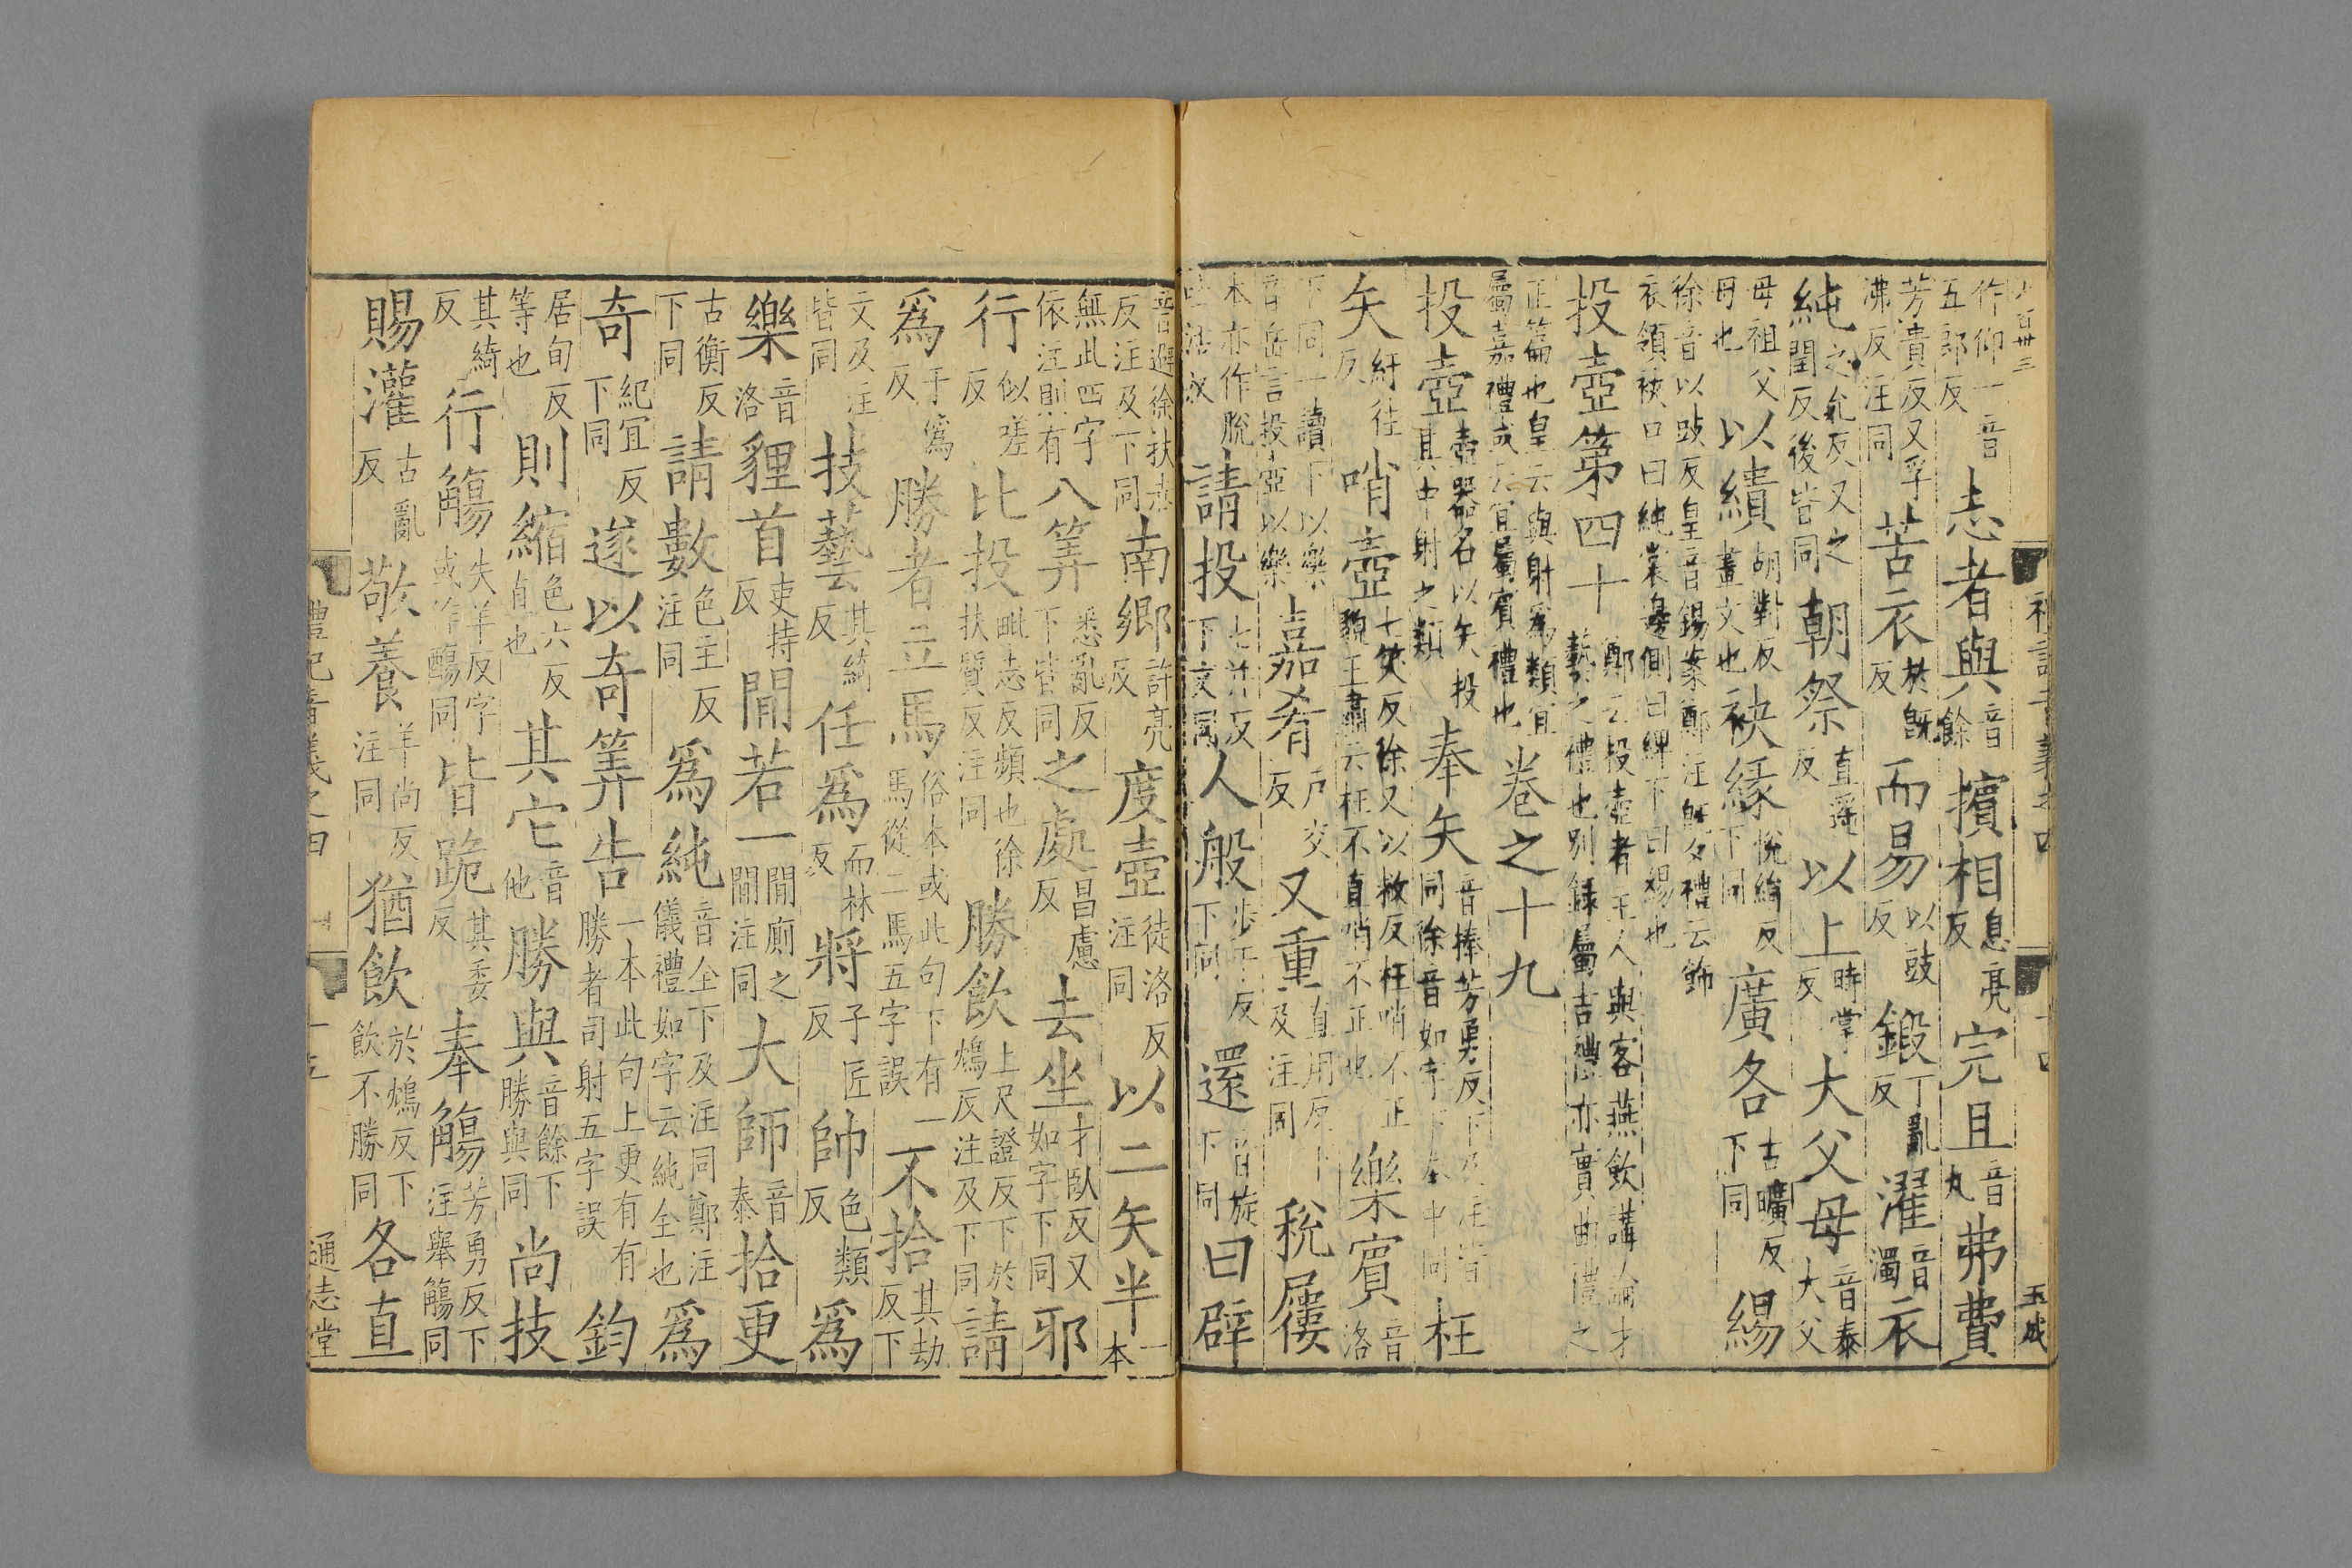 六百卅三 礼記音義之四 十四 玉成
作仰一音五郎反志者與音餘擯相息亮反完且音丸弗費
芳貴反又孚沸反注同苦衣於旣反而易以豉反鍛丁亂反濯音濁衣
純之允反又之閏反後皆同朝祭直遥反以上時掌反大父母音泰大父
母祖父母也以繢胡對反畫文也袂緣悅絹反下同廣各古曠反下同緆
徐音以豉反皇音錫案鄭注旣夕禮云飾衣領袂口曰純裳邊側曰綼下曰緆也
投壺第四十鄭云投壺者主人與客燕飲講論才藝之禮也別録屬吉禮亦實曲禮之
正篇也皇云與射爲類宜屬嘉禮或云宜屬賓禮也卷之十九
投壺壺器名以矢投其中射之類奉矢音捧芳勇反下及注皆同徐音如字下奉中同枉
矢紆往反哨壺七笑反徐又以救反枉哨不正貌王肅云枉不直哨不正也樂賓音洛
下同一讀下以樂音岳言投壺以樂嘉肴戶交反又重直用反下及注同稅屨
本亦作脫吐活反請投七井反下文同人般步干反下同還音旋下同曰辟
音避徐扶赤反注及下同南鄉許亮反度壺徒洛反注同以二矢半一本
無此四字依注則有八筭悉亂反下皆同之處昌慮反去坐才臥反又如字下同邪
行似嗟反比投毗志反頻也徐扶質反注同勝飲上尺證反下於鴆反注及下同請
爲于僞反勝者立馬俗本或此句下有一馬從二馬五字誤不拾其劫反下
文及注皆同技藝其綺反任爲而林反將子匠反帥色類反爲
樂音洛貍首吏持反閒若一閒廁之閒注同大師音泰拾更
古衡反下同請數色主反注同爲純音全下及注同鄭注儀禮如字云純全也爲
奇紀宜反下同遂以奇筭告一本此句上更有有勝者司射五字誤鈞
居旬反等也則縮色六反直也其它音他勝與音餘下勝與同尚技
其綺反行觴失羊反字或作䬕同皆跪其委反奉觴芳勇反下注舉觴同
賜灌古亂反敬養羊尚反注同猶飲於鴆反下飲不勝同各直
禮記音義之四 十五 通志堂